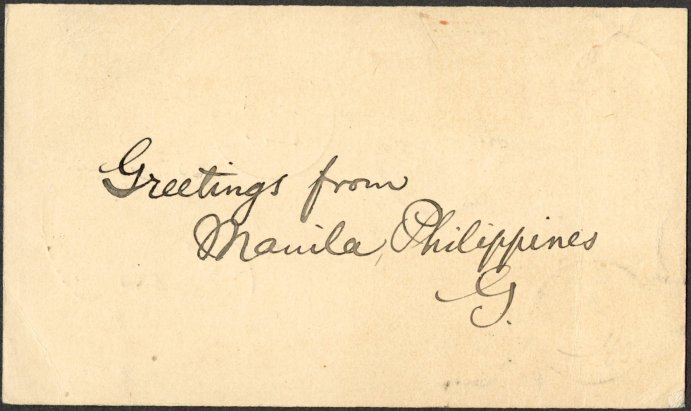 Greetings from
Manila, Philippines
G.